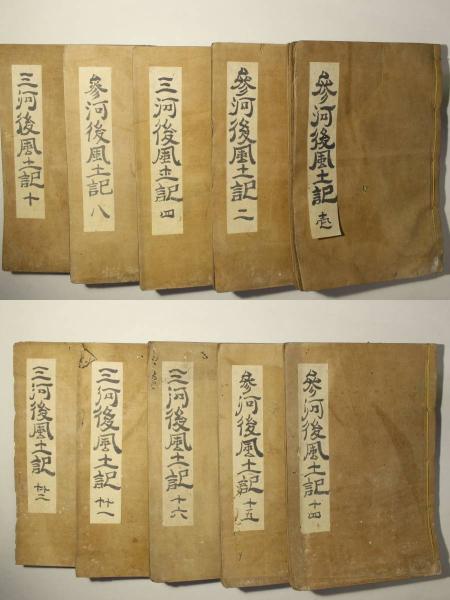 參河後風土記 壱
參河後風土記 二
三河後風土記 四
參河後風土記 八
三河後風土記 十
參河後風土記 十四
參河後風土記 十五
三河後風土記 十六
三河後風土記 廿一
三河後風土記 廿二